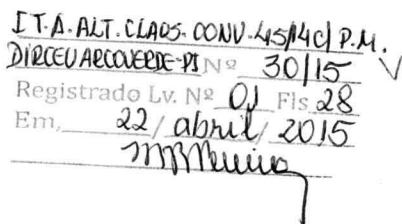 I T.A. ALT. CLAÚS. CONV. 45/14 C/ P.M.
DIRCEU ARCOVERDE-PI Nº 30/15
Registrado Lv. Nº 01 Fls 28
Em, 22/ abril/ 2015